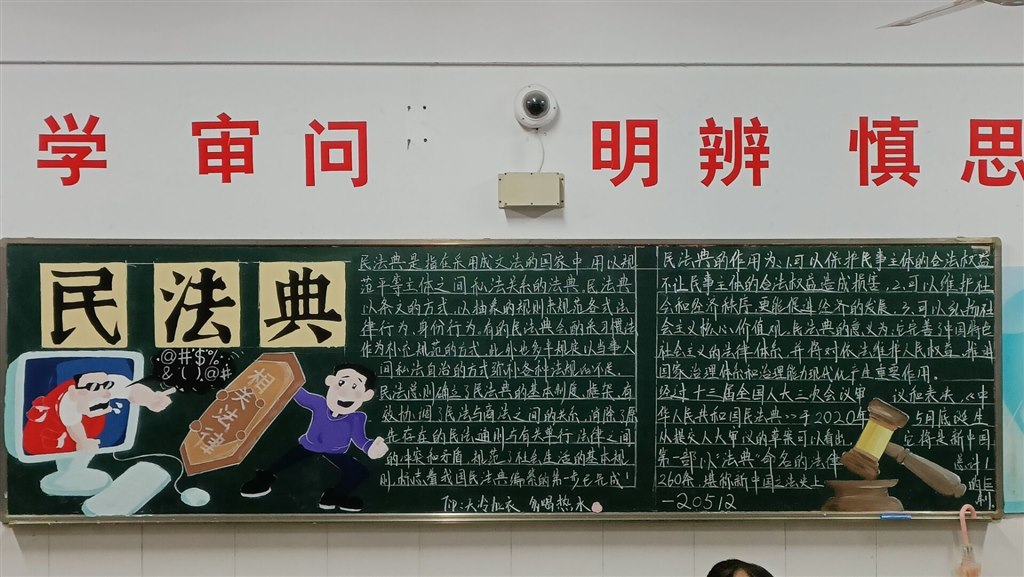 学 审 问 明 辨 慎 思
民 法 典
@#$%
&()@#
相关法律
民法典是指在采用成文法的国家中用以规
范平等主体之间私法关系的法典。民法典
以条文的方式,以抽象的规则来规范各式法
律行为、身份行为。有的民法典会的承习惯法
作为补充规范的方式,此外也多半规定以当事人
间私法自治的方式弥补各种法规的不足。
民法总则确立了民法典的基本制度、框架,有
效协调了民法与商法之间的关系,消除了原
先存在的民法通则与有关单行法律之间
的冲突和矛盾,规范了社会生活的基本规
则,标志着我国民法典编纂的第一步已完成!
Tip:天冷加衣 多喝热水
民法典的作用为:1.可以保护民事主体的合法权益
不让民事主体的合法权益造成损害。2.可以维护社
会和经济秩序,更能促进经济的发展。3.可以弘扬社
会主义核心价值观。民法典的意义为:与完善中国特色
社会主义的法律体系,并将对依法维护人民权益,推进
国家治理体系和治理能力现代化产生重要作用。
经过十三届全国人大三次会议审议和表决,《中
华人民共和国民法典》于2020年5月底诞生
从提交人大审议的草案可以看出,它将是新中国
第一部以“法典”命名的法律
1260条,堪称新中国立法史上
-20512